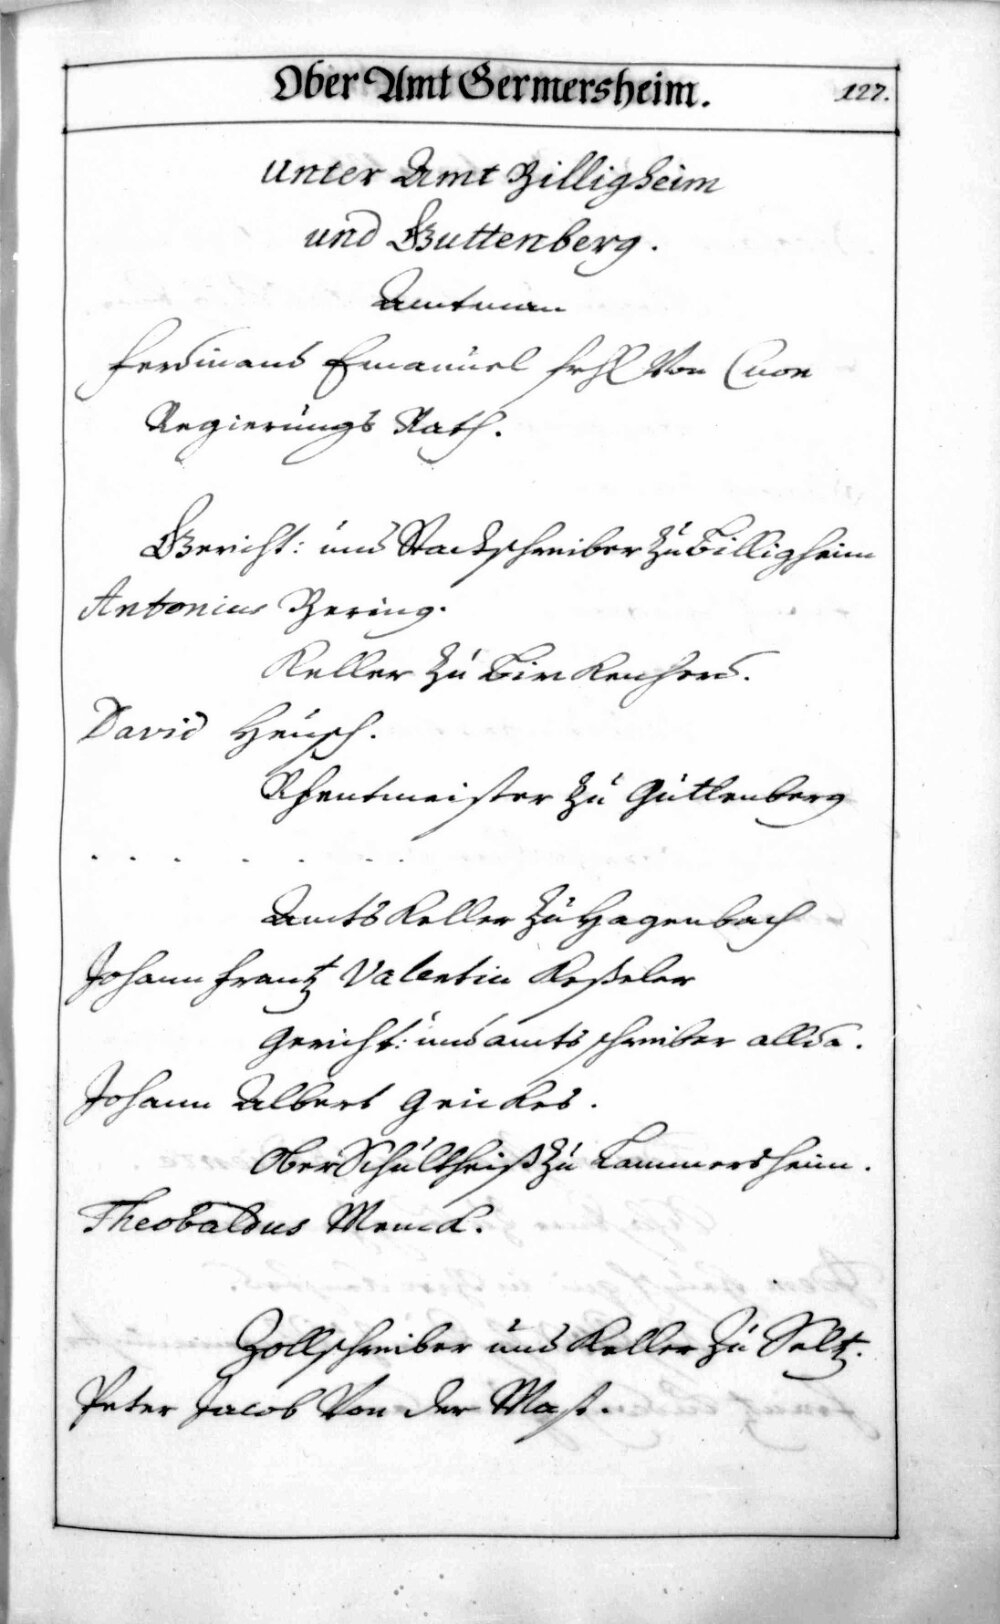 Ober Amt Germersheim.
127.
Unter Amt Billigheim
und Guttenberg.
Ambtman
Ferdinand Emanuel frhl Von
Regierungs Rath.
Gericht: und Stadtschreiber zu Billigheim
Antonius Bering.
Keller zu Birkenhord.
David Heusch.
Rhentmeister zu Guttenberg
. . . . . . .
Ambts Keller zu Hagenbach
Johann Frantz Valentin Keßeler
Gericht: und ambts schreiber allda.
Johann Albert
OberSchultheiß zu Lammersheim.
Theobaldus Menck.
Zollschreiber und Keller zu Seltz.
Peter Jacob Von der Mast.